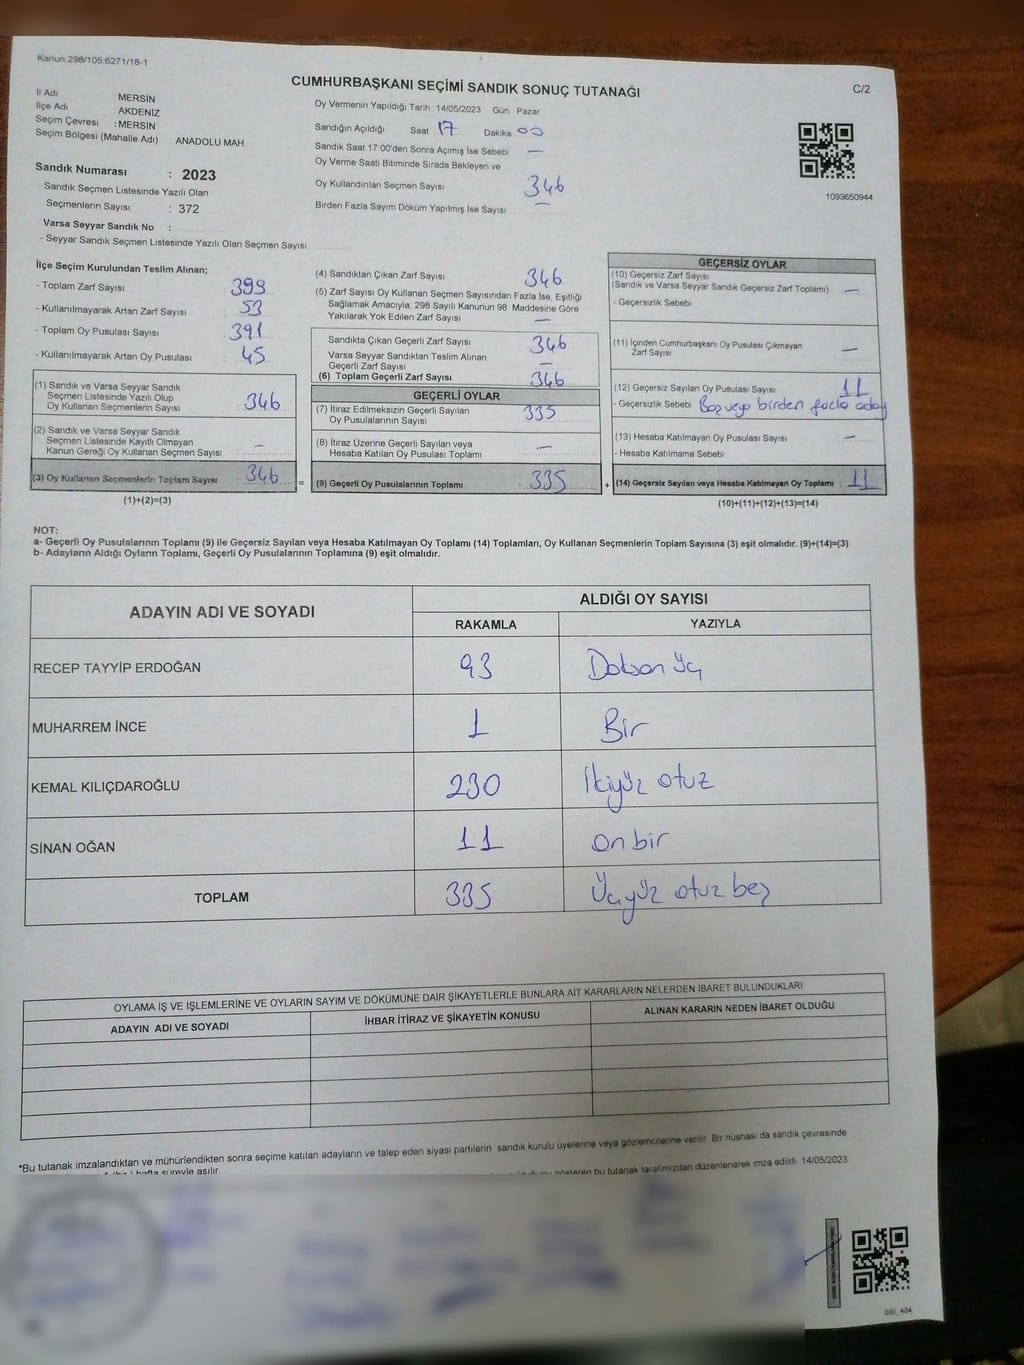 Kanun.298/105.6271/18-1
CUMHURBAŞKANI SEÇİMİ SANDIK SONUÇ TUTANAĞI
C/2
İl Adı MERSİN
İlçe Adı AKDENİZ
Seçim Çevresi : MERSİN
Seçim Bölgesi (Mahalle Adı) : ANADOLU MAH.
Sandık Numarası : 2023
- Sandık Seçmen Listesinde Yazılı Olan
Seçmenlerin Sayısı : 372
Varsa Seyyar Sandık No :
- Seyyar Sandık Seçmen Listesinde Yazılı Olan Seçmen Sayısı
Oy Vermenin Yapıldığı Tarih : 14/05/2023 Gün Pazar
Sandığın Açıldığı Saat 17 Dakika 00
Sandık Saat 17 00'den Sonra Açımış İse Sebebi —
Oy Verme Saati Bitiminde Sırada Bekleyen ve
Oy Kullandırılan Seçmen Sayısı 346
Birden Fazla Sayım Döküm Yapılmış İse Sayısı —
1093650944
İlçe Seçim Kurulundan Teslim Alınan;
- Toplam Zarf Sayısı : 399
- Kullanılmayarak Artan Zarf Sayısı : 53
- Toplam Oy Pusulası Sayısı : 391
- Kullanılmayarak Artan Oy Pusulası : 45
(1) Sandık ve Varsa Seyyar Sandık
Seçmen Listesinde Yazılı Olup
Oy Kullanan Seçmenlerin Sayısı : 346
(2) Sandık ve Varsa Seyyar Sandık
Seçmen Listesinde Kayıtlı Olmayan
Kanun Gereği Oy Kullanan Seçmen Sayısı : —
(3) Oy Kullanan Seçmenlerin Toplam Sayısı : 346
(1)+(2)=(3)
(4) Sandıktan Çıkan Zarf Sayısı 346
(5) Zarf Sayısı Oy Kullanan Seçmen Sayısından Fazla İse, Eşitliği
Sağlamak Amacıyla, 298 Sayılı Kanunun 98 Maddesine Göre
Yakılarak Yok Edilen Zarf Sayısı —
Sandıkta Çıkan Geçerli Zarf Sayısı 346
Varsa Seyyar Sandıktan Teslim Alınan
Geçerli Zarf Sayısı —
(6) Toplam Geçerli Zarf Sayısı 346
GEÇERLİ OYLAR
(7) İtiraz Edilmeksizin Geçerli Sayılan
Oy Pusulalarının Sayısı : 335
(8) İtiraz Üzerine Geçerli Sayılan veya
Hesaba Katılan Oy Pusulası Toplamı : —
(9) Geçerli Oy Pusulalarının Toplamı : 335
GEÇERSİZ OYLAR
(10) Geçersiz Zarf Sayısı
(Sandık ve Varsa Seyyar Sandık Geçersiz Zarf Toplamı) : —
- Geçersizlik Sebebi
(11) İçinden Cumhurbaşkanı Oy Pusulası Çıkmayan
Zarf Sayısı —
(12) Geçersiz Sayılan Oy Pusulası Sayısı : 11
- Geçersizlik Sebebi Boş veya birden fazla aday
(13) Hesaba Katılmayan Oy Pusulası Sayısı : —
- Hesaba Katılmama Sebebi
+ (14) Geçersiz Sayılan veya Hesaba Katılmayan Oy Toplamı : 11
(10)+(11)+(12)+(13)=(14)
NOT:
a- Geçerli Oy Pusulalarının Toplamı (9) ile Geçersiz Sayılan veya Hesaba Katılmayan Oy Toplamı (14) Toplamları, Oy Kullanan Seçmenlerin Toplam Sayısına (3) eşit olmalıdır. (9)+(14)=(3)
b- Adayların Aldığı Oyların Toplamı, Geçerli Oy Pusulalarının Toplamına (9) eşit olmalıdır.
ADAYIN ADI VE SOYADI
ALDIĞI OY SAYISI
RAKAMLA YAZIYLA
RECEP TAYYİP ERDOĞAN 93 Doksan üç
MUHARREM İNCE 1 Bir
KEMAL KILIÇDAROĞLU 230 İkiyüz otuz
SİNAN OĞAN 11 on bir
TOPLAM 335 Üçyüz otuz beş
OYLAMA İŞ VE İŞLEMLERİNE VE OYLARIN SAYIM VE DÖKÜMÜNE DAİR ŞİKAYETLERLE BUNLARA AİT KARARLARIN NELERDEN İBARET BULUNDUKLARI
ADAYIN ADI VE SOYADI İHBAR İTİRAZ VE ŞİKAYETİN KONUSU ALINAN KARARIN NEDEN İBARET OLDUĞU
*Bu tutanak imzalandıktan ve mühürlendikten sonra seçime katılan adayların ve talep eden siyasi partilerin sandık kurulu üyelerine veya gözlemcilerine verilir. Bir nüshası da sandık çevresinde
(bir) hafta süreyle asılır.
gösteren bu tutanak tarafımızdan düzenlenerek imza edildi. 14/05/2023
SSI_404